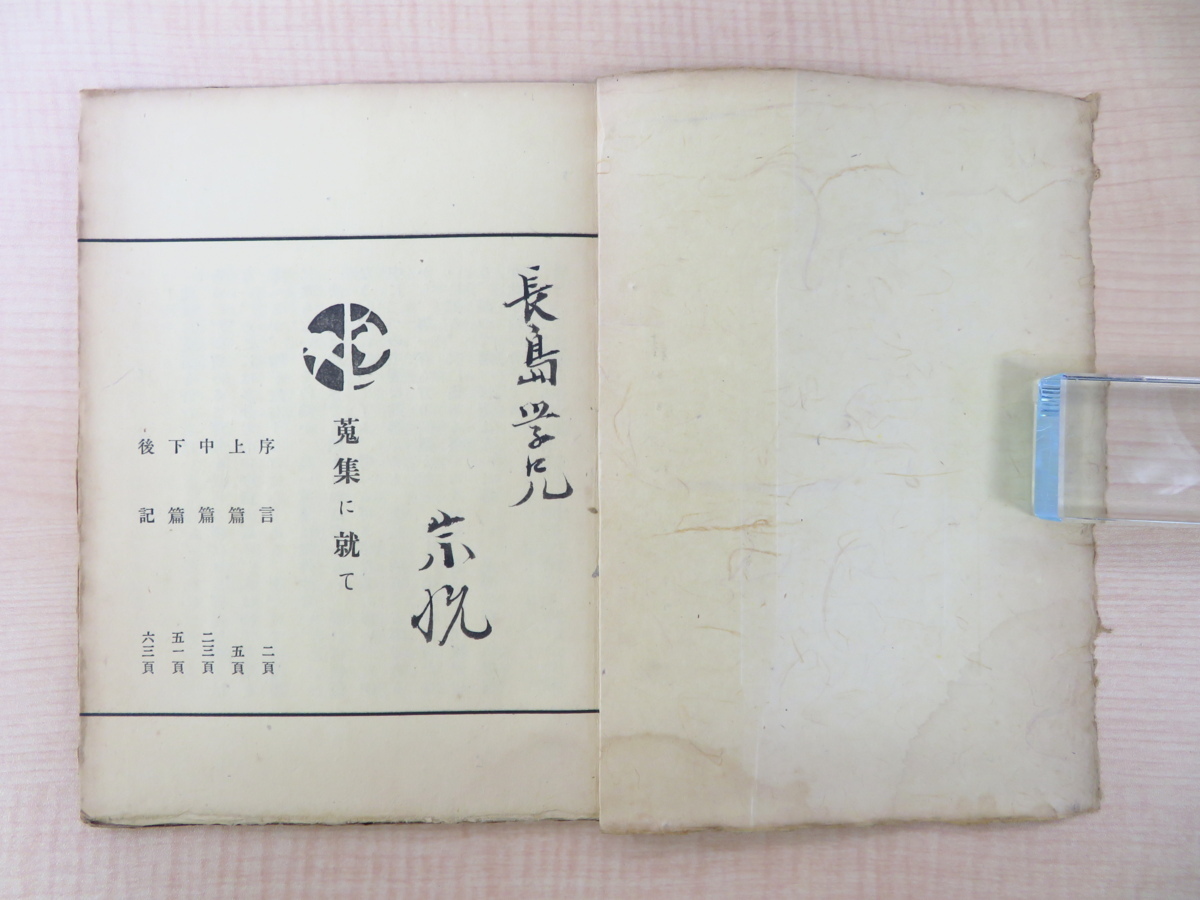 長島学兄
宗悦
蒐集に就て
序言 二頁
上篇 五頁
中篇 二三頁
下篇 五一頁
後記 六三頁